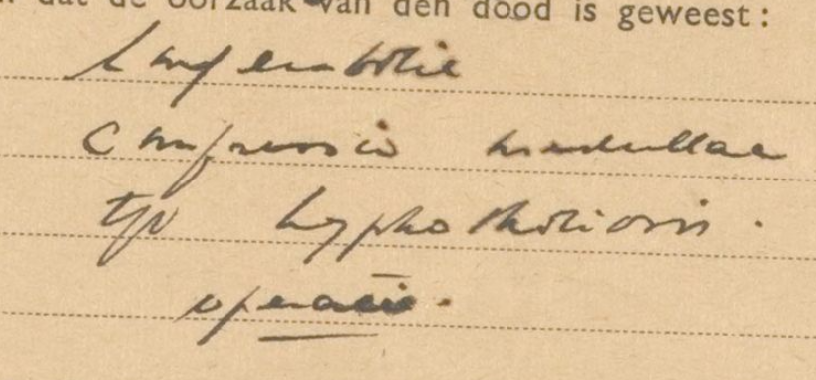 dat de oorzaak van den dood is geweest:
Longembolie
Compressio medullae
tgv kyphoskoliosis.
operatie.